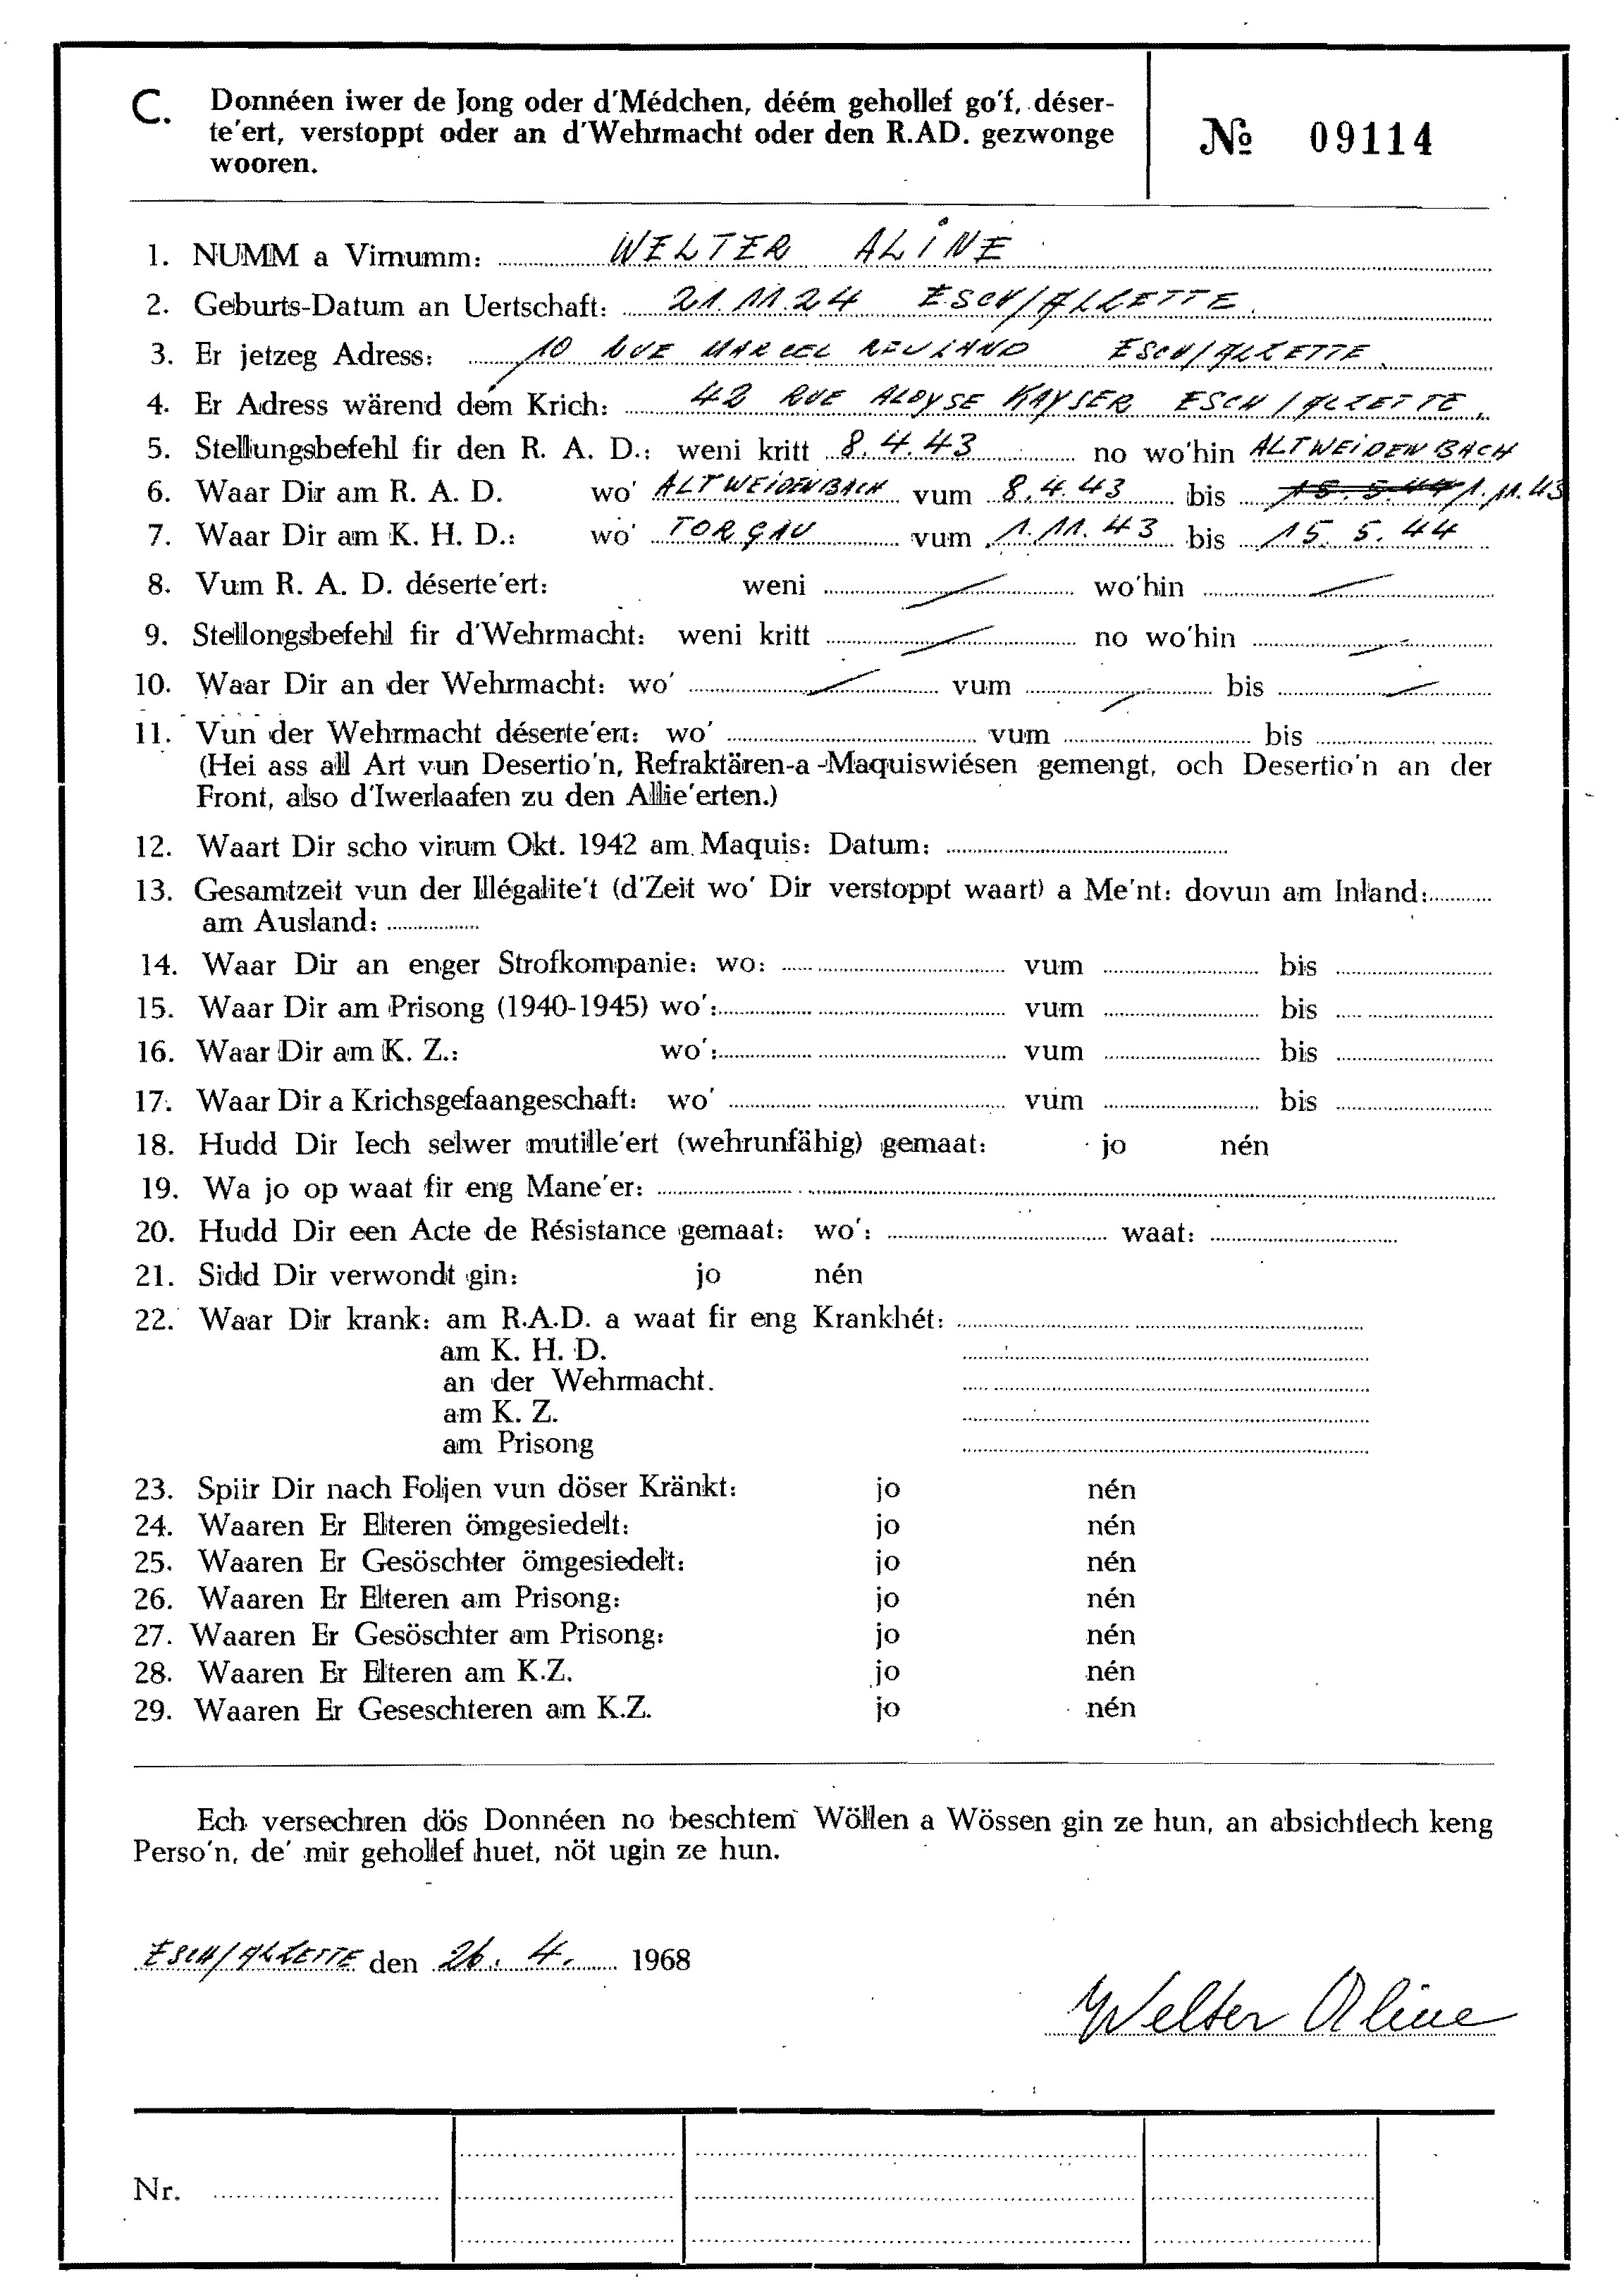 C. Donnéen iwer de Jong oder d'Médchen, déém gehollef go'f, déser-
te'ert, verstoppt oder an d'Wehrmacht oder den R.AD. gezwonge
wooren.
№ 09114
1. NUMM a Virnumm: WELTER ALINE
2. Geburts-Datum an Uertschaft: 21.11.24 ESCH/ALZETTE.
3. Er jetzeg Adress: 10 RUE MARCEL REULAND ESCH/ALZETTE.
4. Er Adress wärend dem Krich: 42 RUE ALOYSE KAYSER ESCH/ALZETTE.
5. Stellungsbefehl fir den R. A. D.: weni kritt 8.4.43 no wo'hin ALTWEIDENBACH
6. Waar Dir am R. A. D. wo' ALTWEIDENBACH vum 8.4.43 bis 15.5.44 1.11.43
7. Waar Dir am K. H. D.: wo' TORGAU vum 1.11.43 bis 15.5.44
8. Vum R. A. D. déserte'ert: weni / wo'hin /
9. Stellongsbefehl fir d'Wehrmacht: weni kritt / no wo'hin /
10. Waar Dir an der Wehrmacht: wo' / vum / bis /
11. Vun der Wehrmacht déserte'ert: wo' vum bis
(Hei ass all Art vun Desertio'n, Refraktären-a-Maquiswiésen gemengt, och Desertio'n an der
Front, also d'Iwerlaafen zu den Allie'erten.)
12. Waart Dir scho virum Okt. 1942 am Maquis: Datum:
13. Gesamtzeit vun der Illégalite't (d'Zeit wo' Dir verstoppt waart) a Me'nt: dovun am Inland:
am Ausland:
14. Waar Dir an enger Strofkompanie: wo: vum bis
15. Waar Dir am Prisong (1940-1945) wo': vum bis
16. Waar Dir am K. Z.: wo': vum bis
17. Waar Dir a Krichsgefaangeschaft: wo' vum bis
18. Hudd Dir Iech selwer mutille'ert (wehrunfähig) gemaat: jo nén
19. Wa jo op waat fir eng Mane'er:
20. Hudd Dir een Acte de Résistance gemaat: wo': waat:
21. Sidd Dir verwondt gin: jo nén
22. Waar Dir krank: am R.A.D. a waat fir eng Krankhét:
am K. H. D.
an der Wehrmacht.
am K. Z.
am Prisong
23. Spiir Dir nach Foljen vun döser Kränkt: jo nén
24. Waaren Er Elteren ömgesiedelt: jo nén
25. Waaren Er Gesöschter ömgesiedelt: jo nén
26. Waaren Er Elteren am Prisong: jo nén
27. Waaren Er Gesöschter am Prisong: jo nén
28. Waaren Er Elteren am K.Z. jo nén
29. Waaren Er Geseschteren am K.Z. jo nén
Ech versechren dös Donnéen no beschtem Wöllen a Wössen gin ze hun, an absichtlech keng
Perso'n, de' mir gehollef huet, nöt ugin ze hun.
ESCH/ALZETTE den 26. 4. 1968
Welter Aline
Nr.